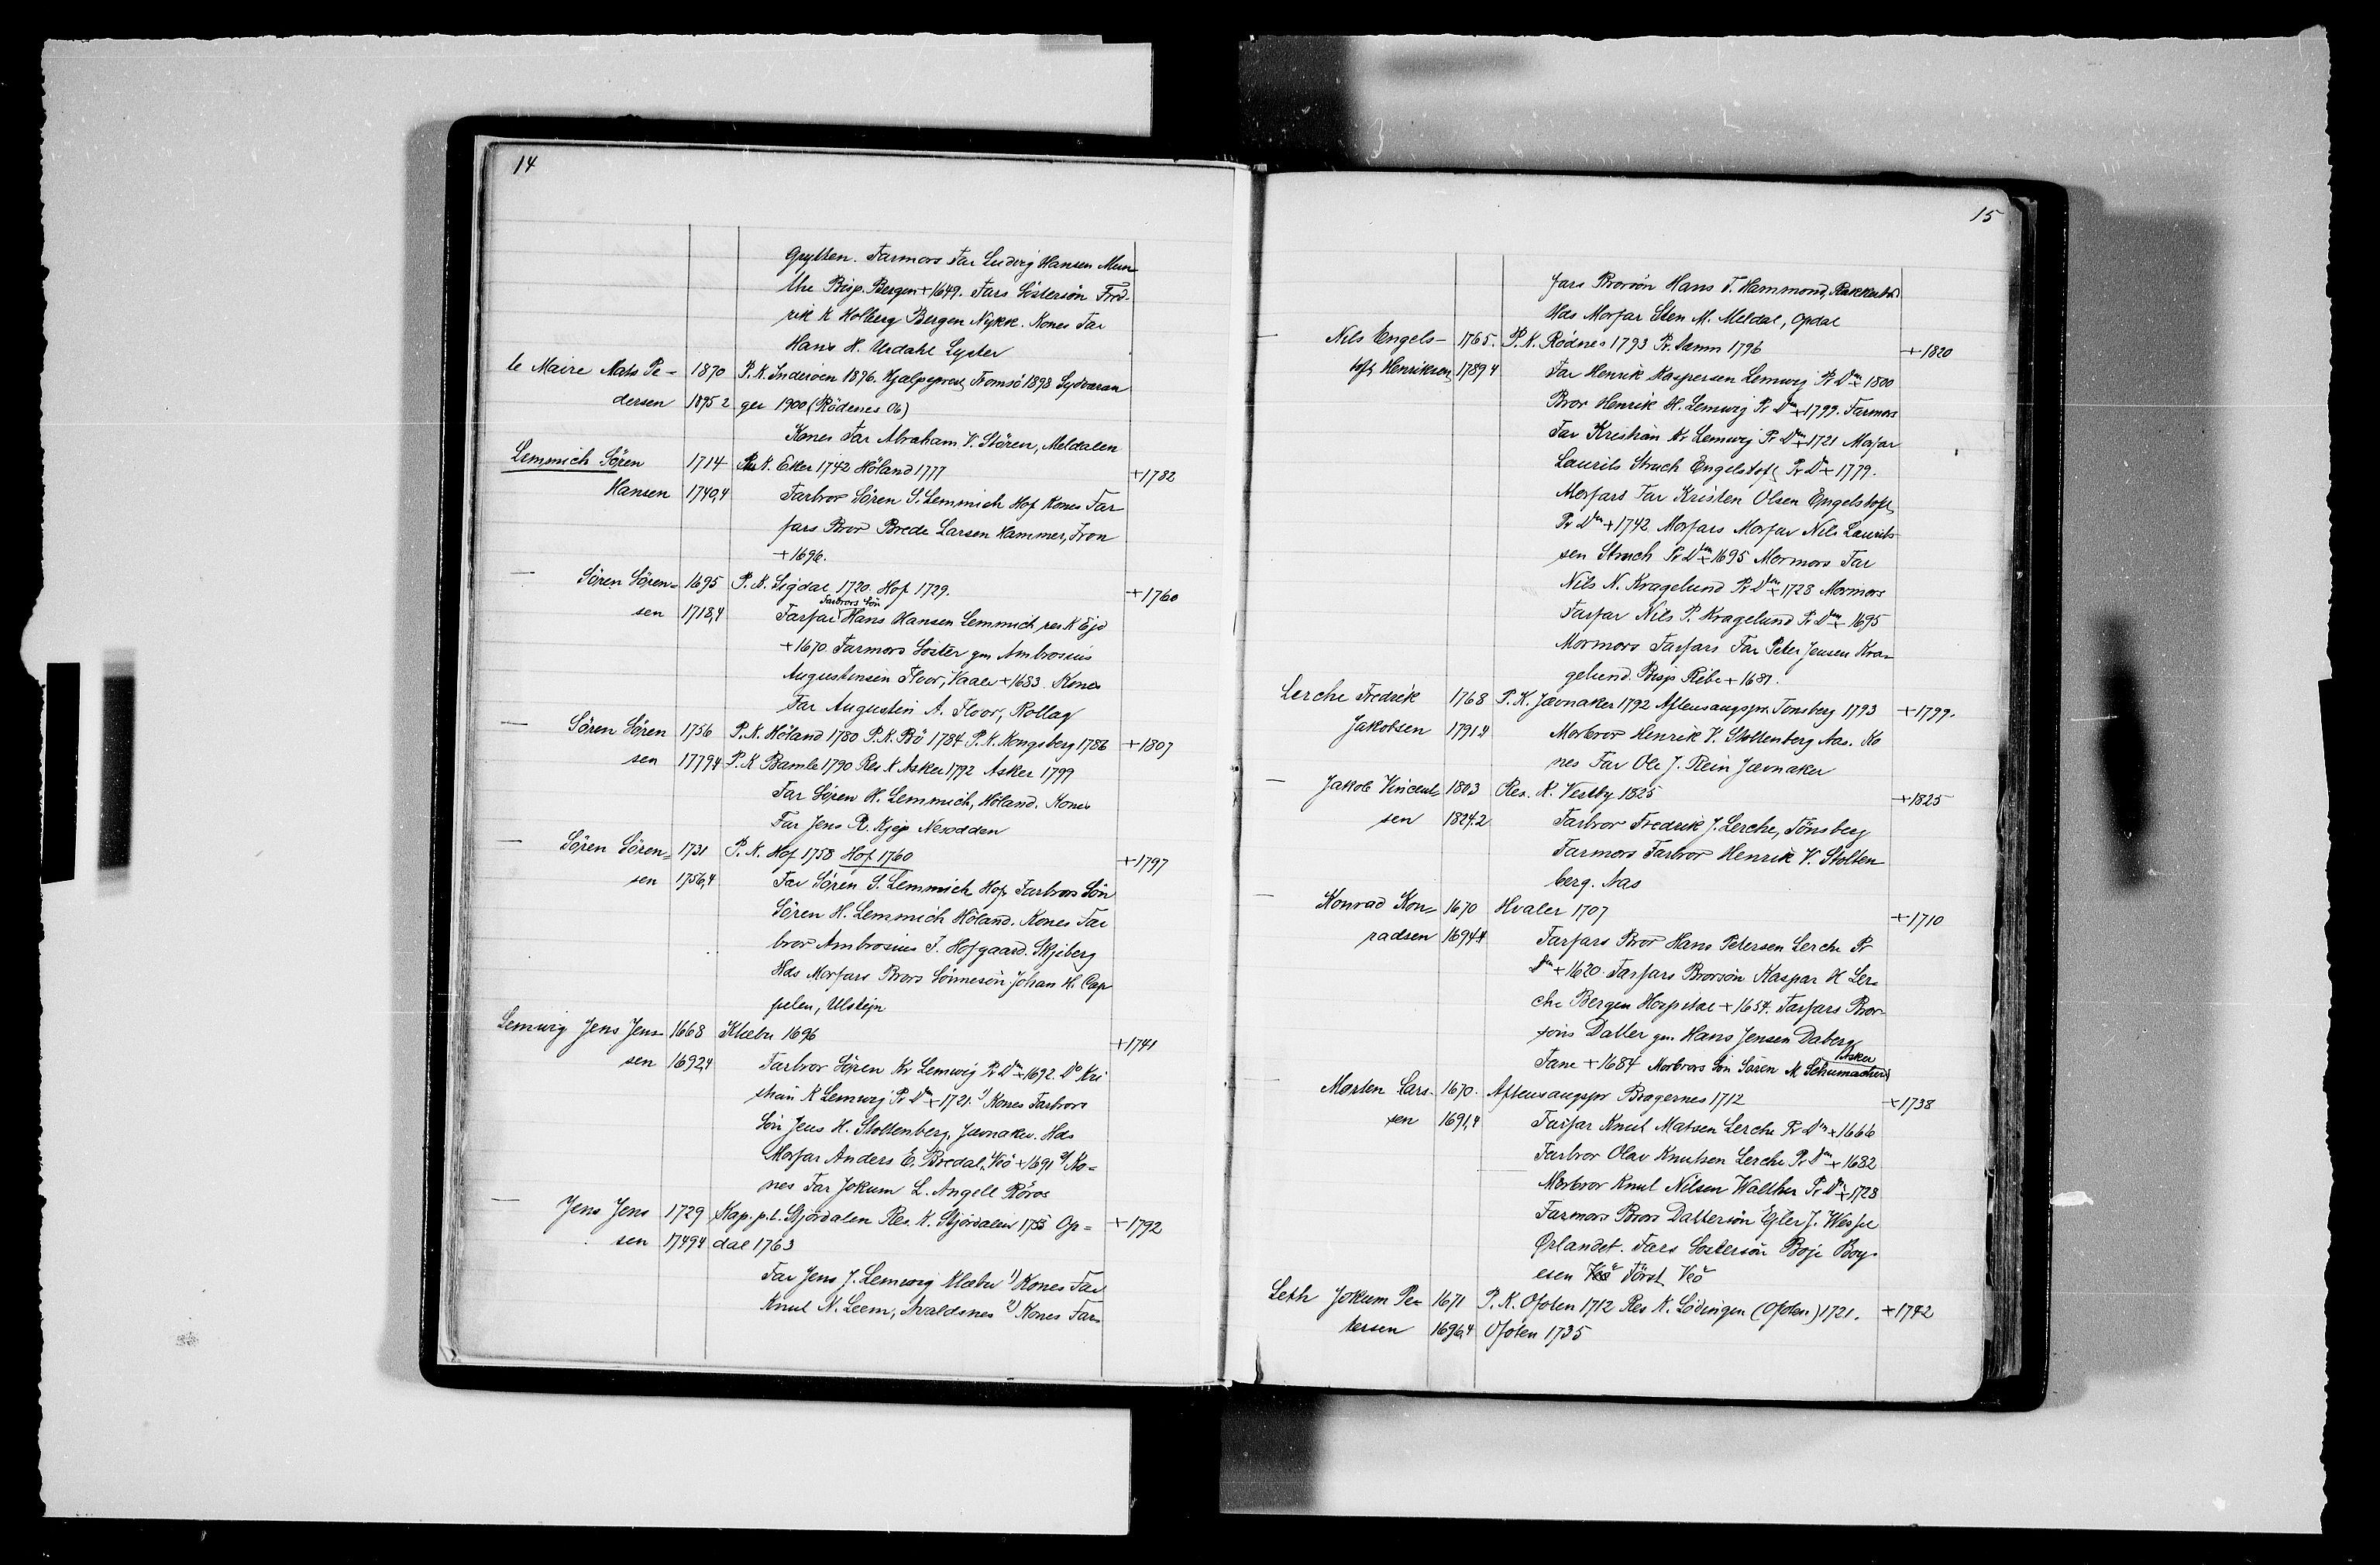 14
Grytten. Farmors Far Ludvig Hansen Mun-
the Bisp. Bergen +1649. Fars Søstersön Fred-
rik K Holberg Bergen Nykk. Kones Far
Hans H. Urdahl Lyster
le Maire Mats Pe- 1870 P.K. Inderöen 1896. Hjælpeprest Tromsö 1898 Sydvaran
dersen 1895 2 ger 1900 (Rödenes 06)
Kones Far Abraham V. Stören, Meldalen
Lemmich Sören 1714 K. Eker 1742 Höland 1777 +1782
Hansen 1740,4 Farbror Sören S. Lemmich Hof Kones Far
fars Bror Brede Larsen Hammer, Fron
+1696.
— Sören Sören= 1695 P.K. Sigdal 1720. Hof 1729. +1760
sen 1718,4 Farfar Farbrors Sön Hans Hansen Lemmich res K Ejd
+1670. Farmors Söster gm Ambrosius
Augustinsen Floor, Vaale +1683. Kones
Far Augustin A. Floor, Rollag
— Sören Sören 1756 P.K. Höland 1780 P.K. Bö 1784 P.K. Kongsberg 1786 +1807
sen 1779,4 P.K Bamle 1790 Res K Asker 1792 Asker 1799
Far Sören H. Lemmich, Höland. Kones
Far Jens R. Kjep Nesodden
— Sören Sören= 1731 P.K. Hof 1758 Hof 1760 +1797
sen 1756,4 Far Sören S. Lemmich Hof Farbrors Sön
Sören H. Lemmich Höland. Kones Far
bror Ambrosius F. Hofgaard. Skjeberg
Hds Morfars Brors Sönnesön Johan H. Cap
pelen, Ulstejn
Lemvig Jens Jens- 1668 Klæbu 1696 +1741
sen 1692,4 Farbror Sören Kr Lemvig Pr Dm +1692. Do Kri
stian K Lemvig Pr Dm +1721. 1) Kones Farbrors
Sön Jens H. Stoltenberg, Jævnaker. Hds
Morfar Anders E. Bredal, Veö +1691 2) Ko=
nes Far Jokum L. Angell Röros
— Jens Jens 1729 Kap. p.l. Stjördalen Res. K. Stjördalen 1755 Op= +1792
sen 17494 dal 1763
Far Jens J. Lemvig Klæbu 1) Kones Far
Knut N. Leem, Avaldsnes 2) Kones Far-
15
fars Brorsön Hans T. Hammond, Rakkestad
Hds Morfar Sten M. Meldal, Opdal
— Nils Engels- 1765. P.K. Rödnes 1793 Pr. Dannm 1796 +1820
toft Henriksen 1789 4 Far Henrik Kaspersen Lemvig Pr Dm + 1800
Bror Henrik H. Lemvig Pr Dm +1799. Farmors
Far Kristian Kr Lemvig Pr Dm +1721 Morfar
Laurits Struch Engelstoft Pr D +1779.
Morfars Far Kristen Olsen Engelstoft
Pr Dm +1742 Morfars Morfar Nils Laurits
sen Struch Pr Dm +1695 Mormors Far
Nils N. Kragelund Pr Dm +1728 Mormors
Farfar Nils P. Kragelund Pr Dm +1695
Mormors Farfars Far Peter Jensen Kra-
gelund. Bisp Ribe +1681.
Lerche Fredrik 1768 P.K. Jævnaker 1792 Aftensangspr. Tönsberg 1793 +1799.
Jakobsen 1791,4 Morbror Henrik V. Stoltenberg Aas. Ko
nes Far Ole J. Rein Jævnaker
— Jakob Vincent- 1803 Res. K. Vestby 1825 +1825
sen 1824.2 Farbror Fredrik J. Lerche, Tönsberg
Farmors Farbror Henrik V. Stolten
berg. Aas
— Konrad Kon- 1670 Hvaler 1707 +1710
radsen 1694,4 Farfars Bror Hans Petersen Lerche Pr
Dm +1620. Farfars Brorsön Kaspar H Ler-
che Bergen Hospital +1654. Farfars Bror-
söns Datter gm. Hans Jensen Daberg
Tane +1684 Morbrors Sön Sören M Schumacher Asker
— Morten Lars- 1670. Aftensangspr Bragernes 1712 +1738
sen 1691,4 Farfar Knut Matsen Lerche Pr Dm +1666
Farbror Olav Knutsen Lerche Pr Dm +1682
Morbror Knut Nilsen Walther Pr Dm +1728
Farmors Brors Dattersön Egler J. Wessel
Ørlandet. Fars Søstersön Boje Boy-
esen Veö Först Veö
Leth Jokum Pe- 1671 P.K. Ofoten 1712 Res K. Lödingen (Ofoten) 1721. +1742
tersen 1696,4 Ofoten 1735